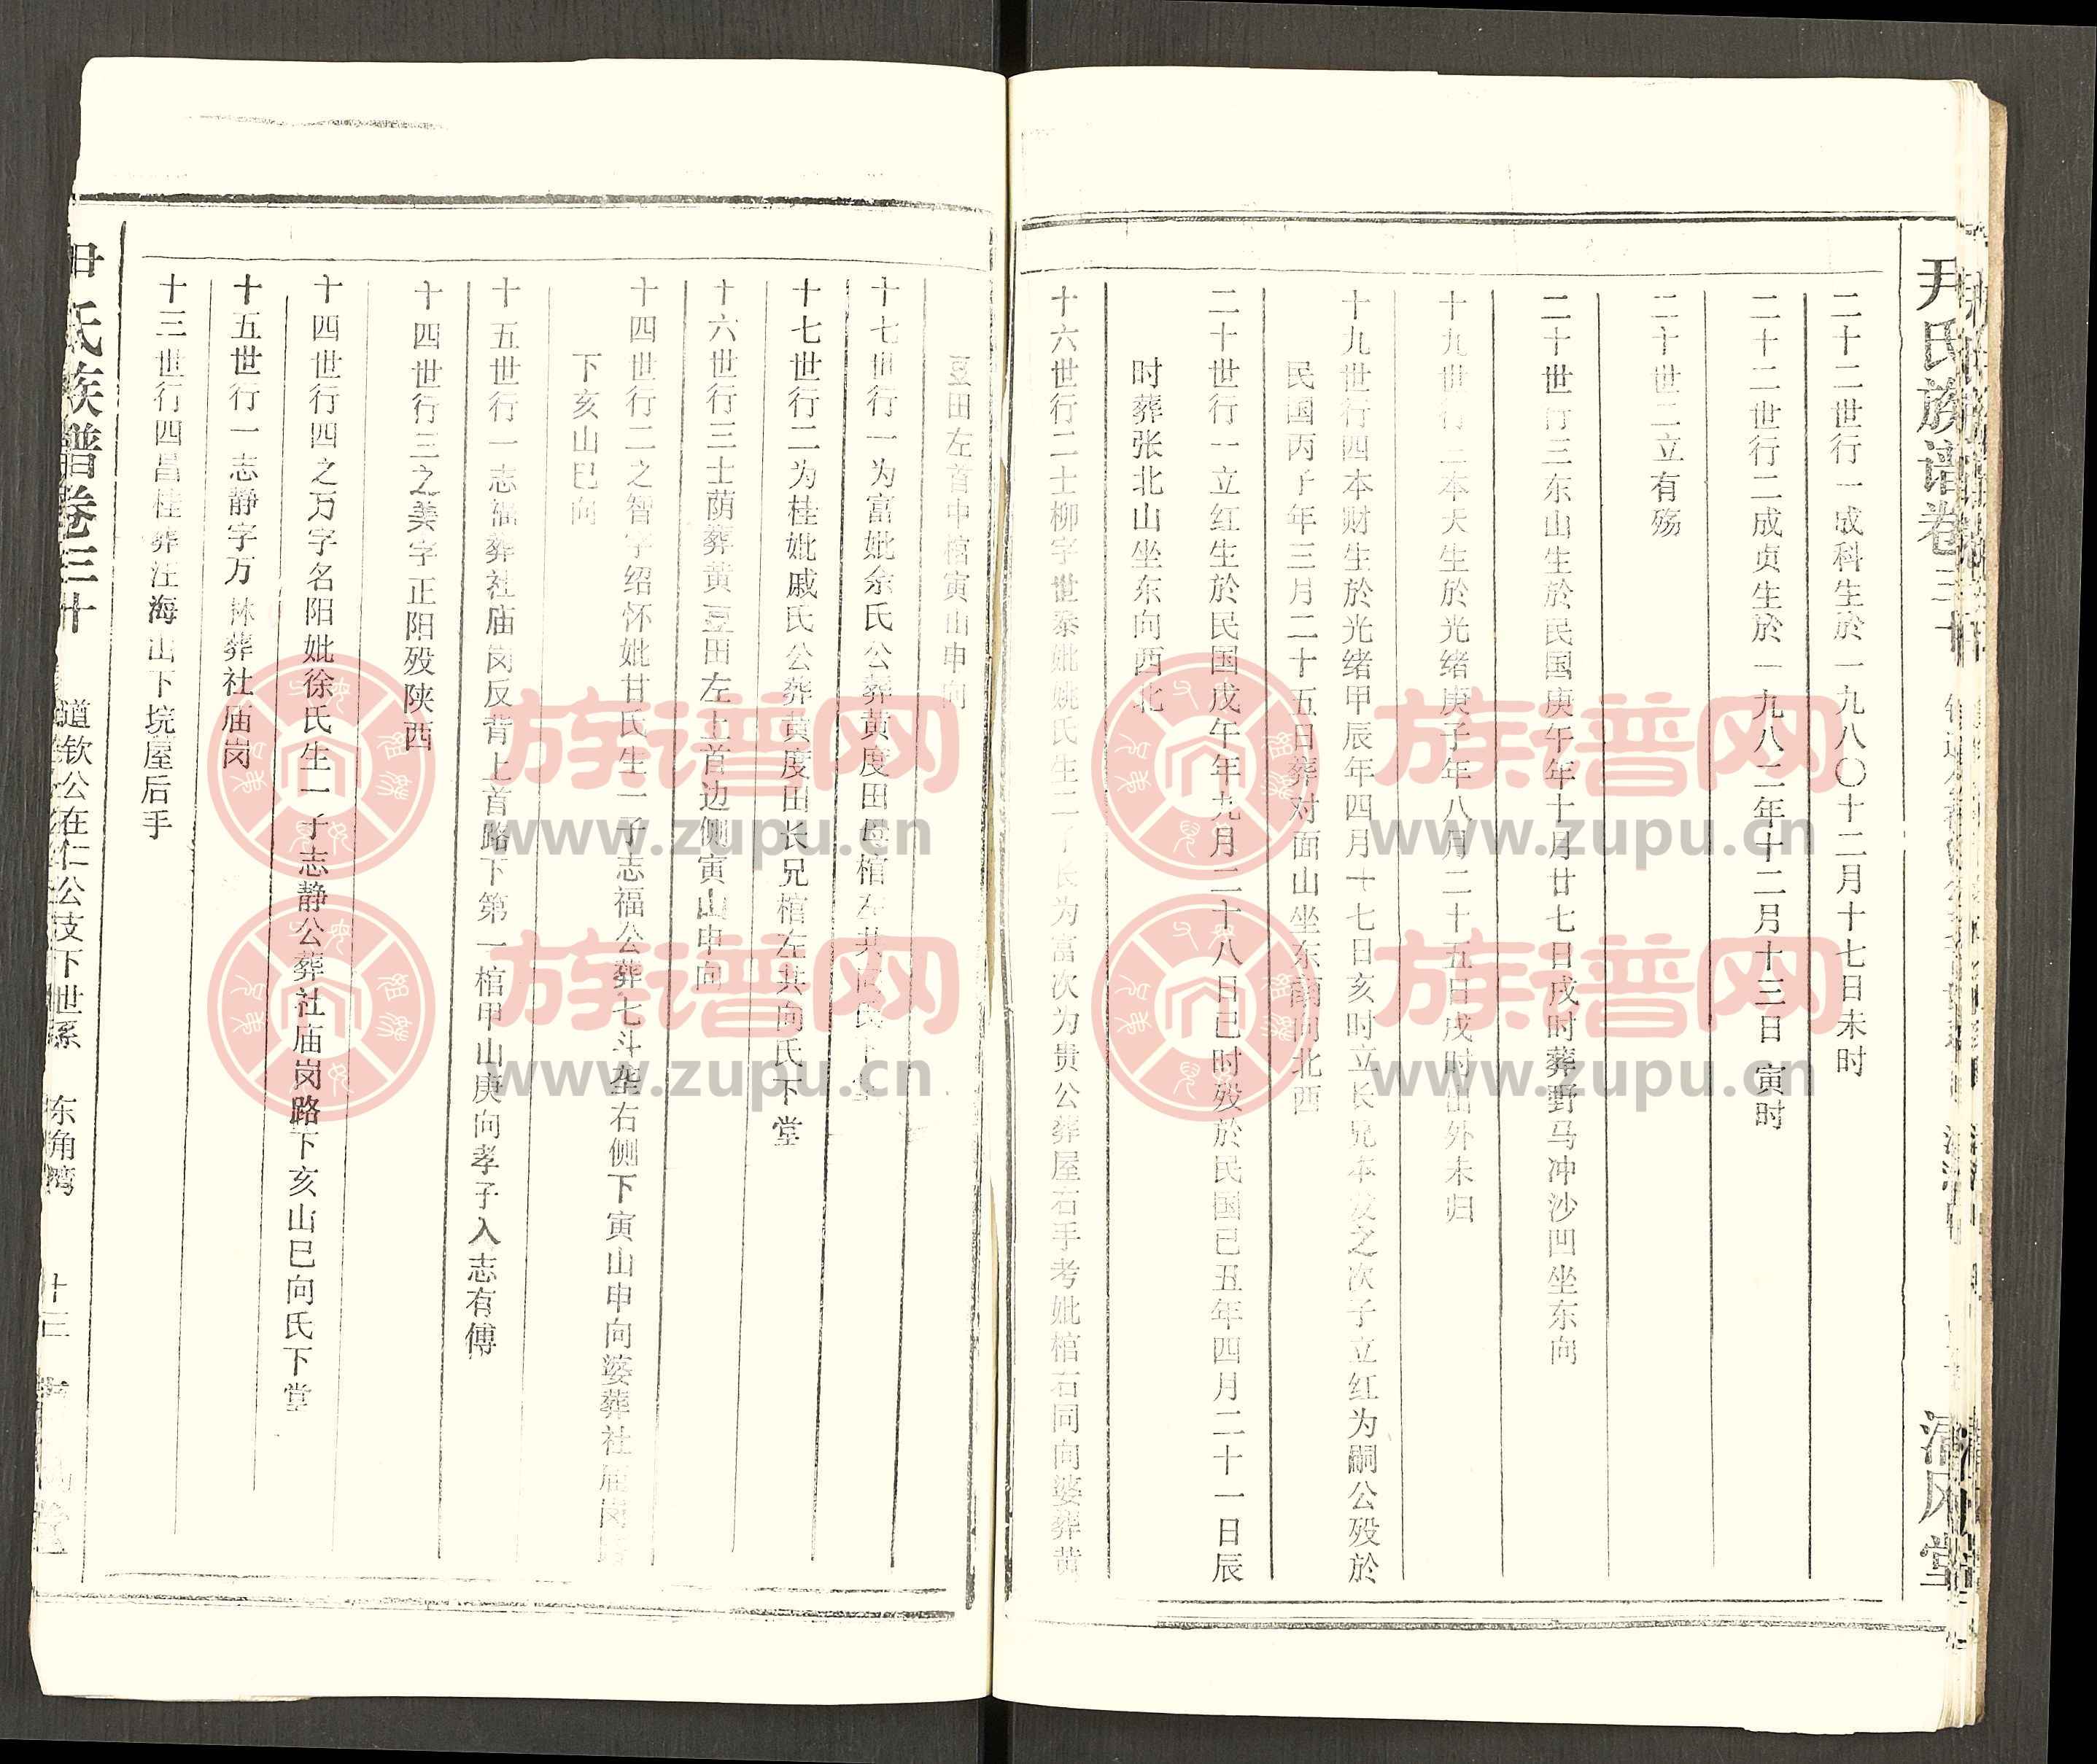 尹氏族谱卷三十
清风堂
二十二世行一成科生於一九八〇十二月十七日未时
二十二世行二成贞生於一九八二年十二月十三日寅时
二十世二立有殇
二十世行三东山生於民国庚午年十月廿七日戌时葬野马冲沙凹坐东向
十九世行二本天生於光绪庚子年八月二十五日戌时出外未归
十九世行四本财生於光绪甲辰年四月十七日亥时立长兄本发之次子立红为嗣公殁於
民国丙子年三月二十五日葬对面山坐东南向北西
二十世行一立红生於民国戊午年九月二十八日巳时殁於民国己丑年四月二十一日辰
时葬张北山坐东向西北
十六世行二士柳字世泰妣姚氏生二子长为富次为贵公葬屋右手考妣棺右同向婆葬黄
豆田左首中棺寅山申向
十七世行一为富妣余氏公葬黄度田母棺左共
十七世行二为桂妣戚氏公葬黄度田长兄棺左共向氏下堂
十六世行三士荫葬黄豆田左上首边侧寅山申向
十四世行二之智字绍怀妣甘氏生一子志福公葬七斗垄右侧下寅山申向婆葬社庙岗路
下亥山巳向
十五世行一志福葬社庙岗反背上首路下第一棺甲山庚向孝子入志有傅
十四世行三之美字正阳殁陕西
十四世行四之万字名阳妣徐氏生一子志静公葬社庙岗路下亥山巳向氏下堂
十五世行一志静字万林葬社庙岗
十三世行四昌桂葬汪海山下垸屋后手
尹氏族谱卷三十
道钦公在仁公支下世系
东角湾
十三
族谱网
www.zupu.cn
族谱网
www.zupu.cn
族谱网
www.zupu.cn
族谱网
www.zupu.cn